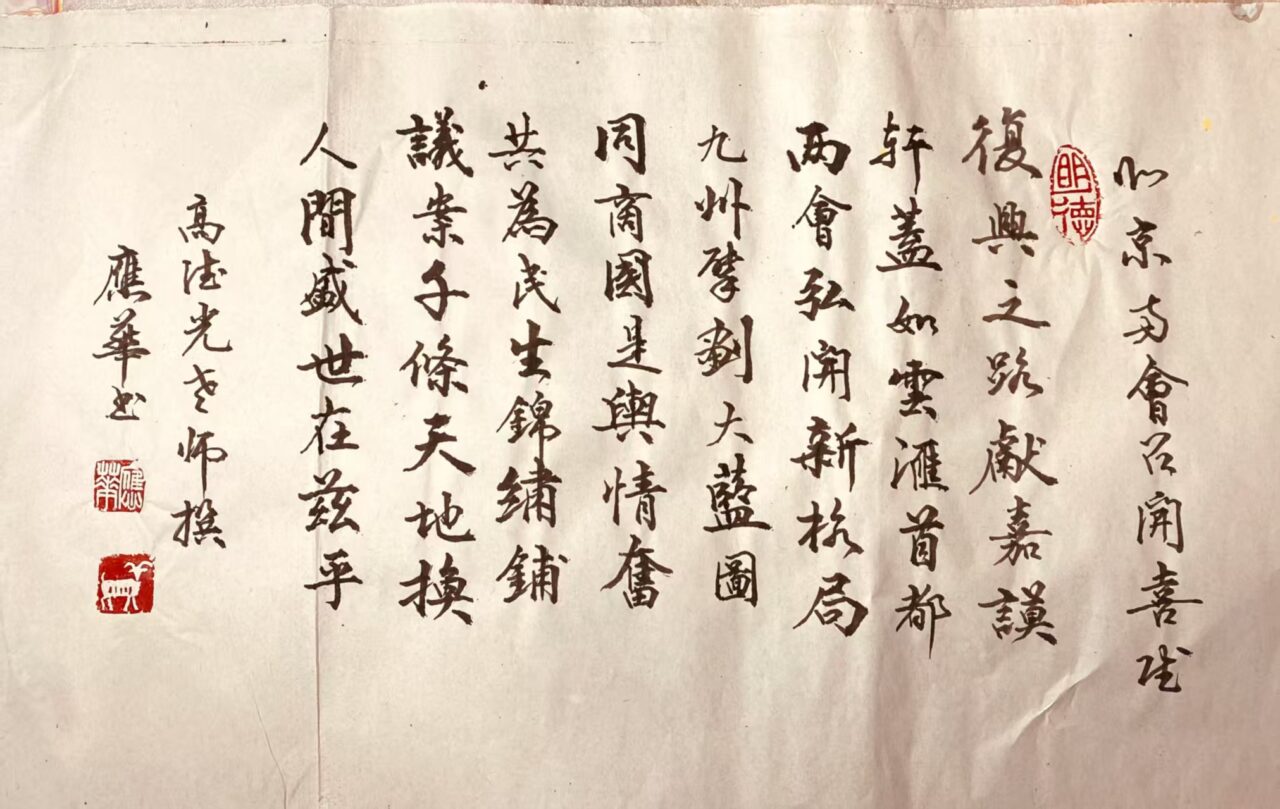 北京两會召開喜
明德
復興之路獻嘉謨
軒蓋如雲滙首都
两會弘開新格局
九州擘劃大藍圖
同商國是輿情奮
共為民生錦繡鋪
議案千條天地換
人間盛世在茲乎
高德光老師撰
應華书
應華